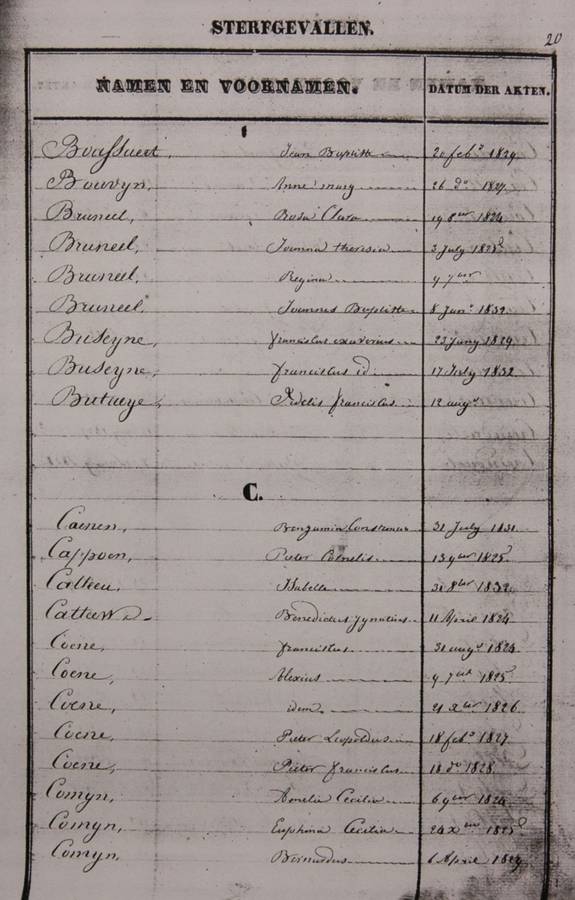 20
STERFGEVALLEN.
NAMEN EN VOORNAMEN. DATUM DER AKTEN.
Boassaert, Jean Baptiste 20 feb.° 1829.
Bouvyn, Anne marg 26 d° 1827.
Bruneel, Rosa Clara 19 8ber 1824
Bruneel, Joanna theresia 3 July 1825
Bruneel, Regina 9 7ber
Bruneel, Joannes Baptiste 8 Jan.° 1832
Buseyne, franciscus xaverius 23 juny 1829.
Buseyne, franciscus id. 17 July 1832
Butaeye, Fidelis franciscus 12 aug.
C.
Caenen, Benjamin Constinus 31 July 1831.
Cappoen, Pieter Cornelis 13 9ber 1825
Cattieu, Isabelle 31 8ber 1832
Benedictus ignatius 11 April 1824
Coene, franciscus 31 aug. 1824
Coene, Alexius 9 7ber 1825
Coene, idem 21 xber 1826
Coene, Pieter Leopoldus 18 feb.° 1827
Coene, Pieter franciscus 18 d° 1828
Comyn, Amelia Cecilia 6 9ber 1824
Comyn, Euphina Cecilia 24 xber 1825
Comyn, Bernardus 6 April 1829